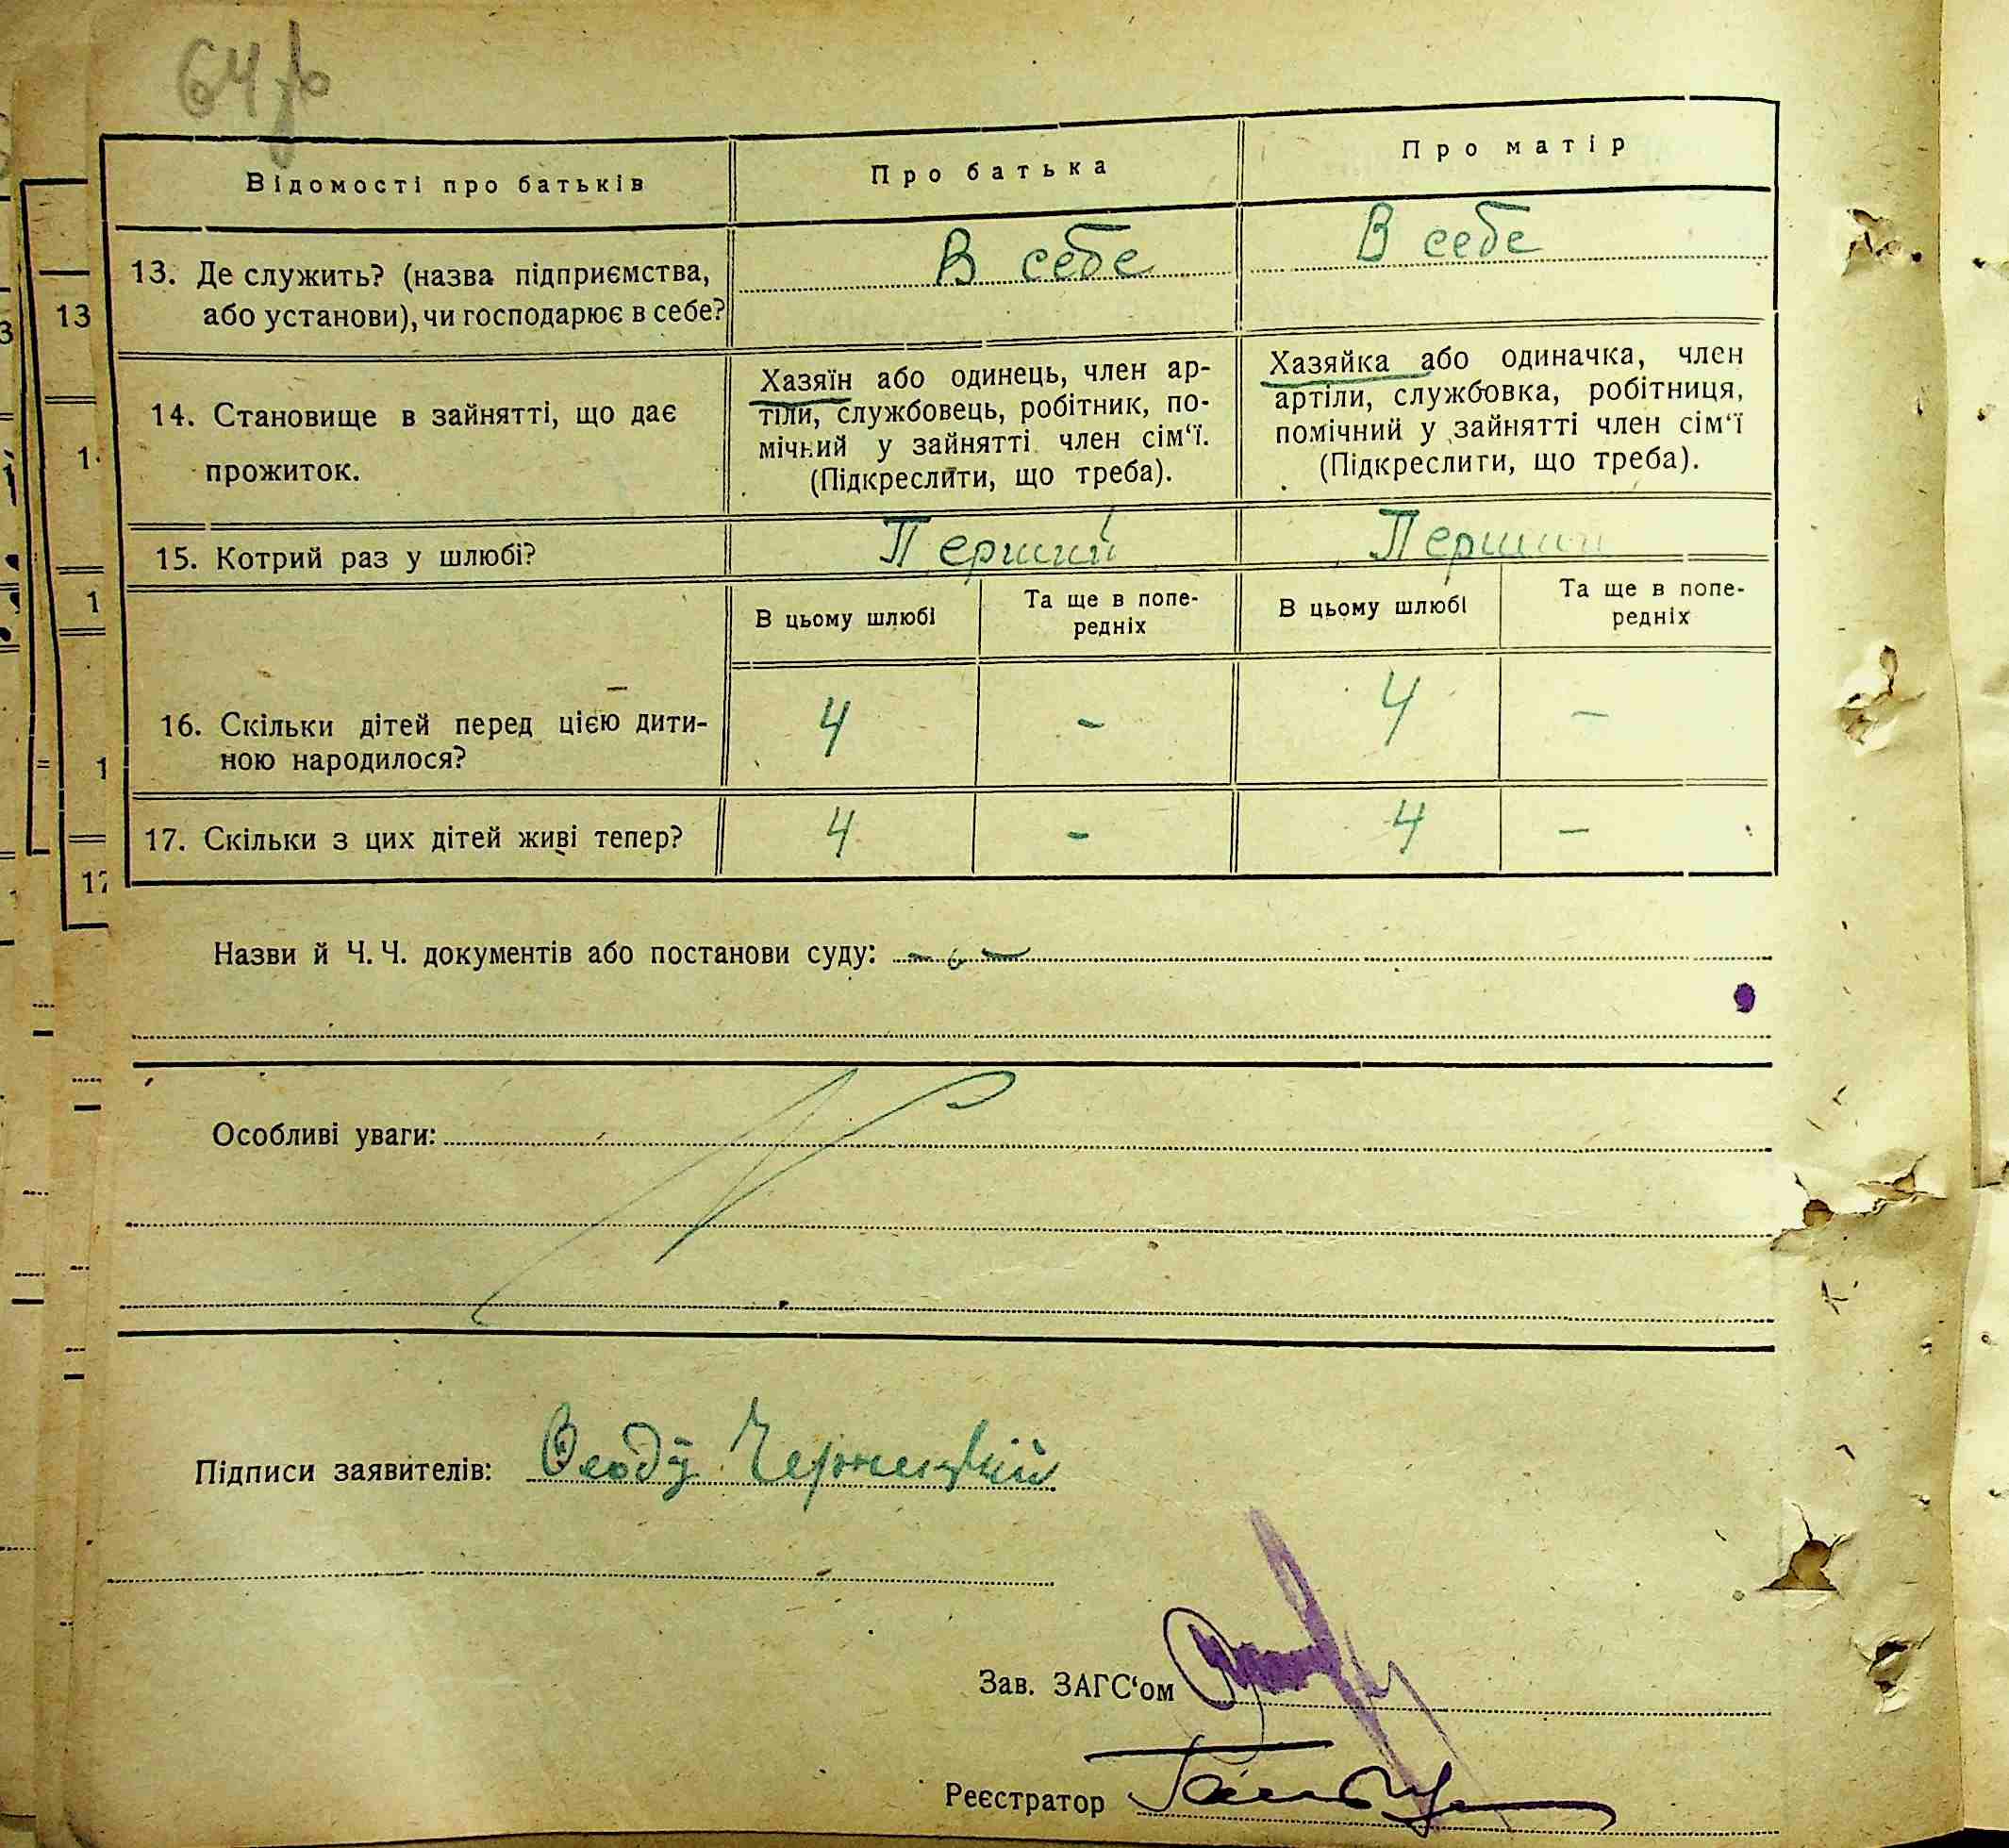 64
Відомості про батьків
Про батька
Про матір
13. Де служить? (назва підприємства,
або установи), чи господарює в себе?
В себе
В себе
14. Становище в зайнятті, що дає
прожиток.
Хазяїн або одинець, член ар-
тіли, службовець, робітник, по-
мічний у зайнятті член сім‘ї.
(Підкреслити, що треба).
Хазяйка або одиначка, член
артіли, службовка, робітниця,
помічний у зайнятті член сім‘ї
(Підкреслити, що треба).
15. Котрий раз у шлюбі?
Перший
Перший
В цьому шлюбі
Та ще в попе-
редніх
В цьому шлюбі
Та ще в попе-
редніх
16. Скільки дітей перед цією дити-
ною народилося?
4 - 4 -
17. Скільки з цих дітей живі тепер?
4 - 4 -
Назви й Ч. Ч. документів або постанови суду:
Особливі уваги:
Підписи заявителів:
Зав. ЗАГС‘ом
Реєстратор
13
1
1
17